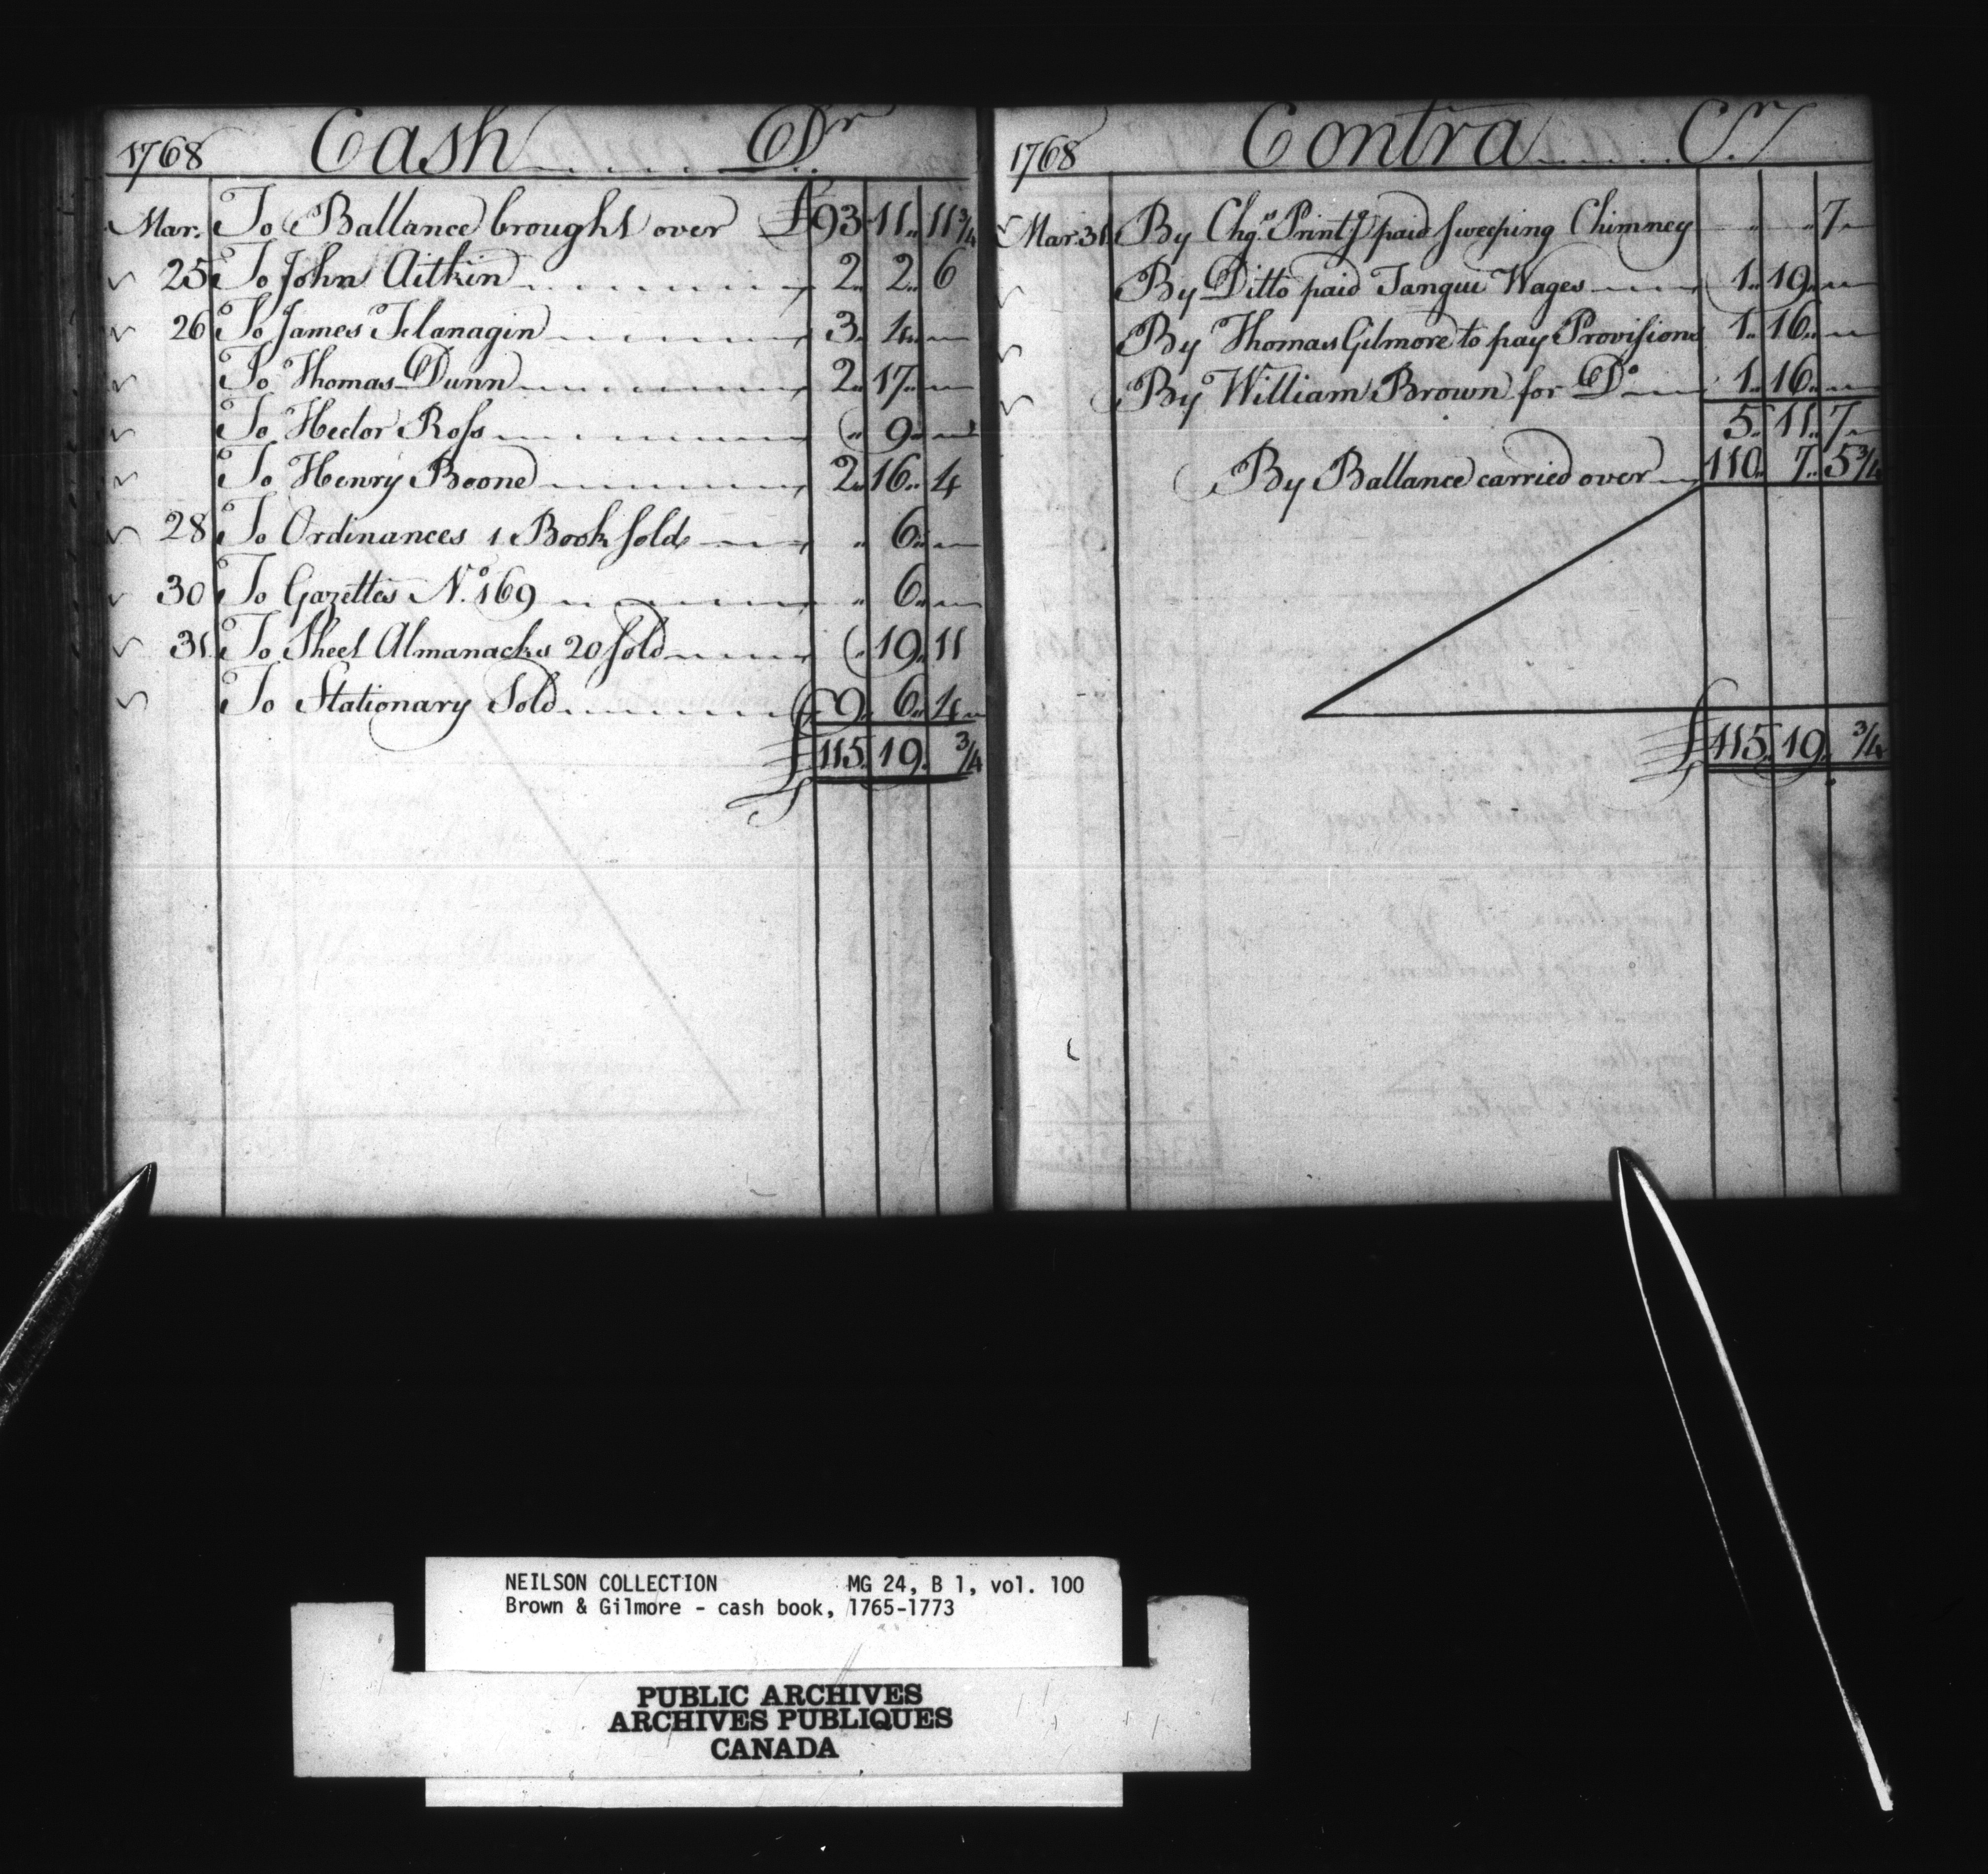 1768 Cash Dr
Mar. To Ballance brought over £ 93 11 11 3/4
25 To John Aitkin 2 2 6
26 To James Flanagin 3 4 —
To Thomas Dunn 2 17 —
To Hector Ross " 9 —
To Henry Boone 2 16 4
28 To Ordinances 1 Book sold " 6 —
30 To Gazettes No. 169 " 6 —
31 To Sheet Almanacks 20 sold " 19 11
To Stationary Sold 9 6 4
£ 115 19 3/4
1768 Contra Cr
Mar. 31 By Chgs. Printg. paid sweeping Chimney " " 7
By Ditto paid Tangui Wages 1 19 —
By Thomas Gilmore to pay Provisions 1 16 —
By William Brown for Do. 1 16 —
5 11 7
By Ballance carried over 110 7 5 3/4
£ 115 19 3/4
NEILSON COLLECTION MG 24, B 1, vol. 100
Brown & Gilmore - cash book, 1765-1773
PUBLIC ARCHIVES
ARCHIVES PUBLIQUES
CANADA